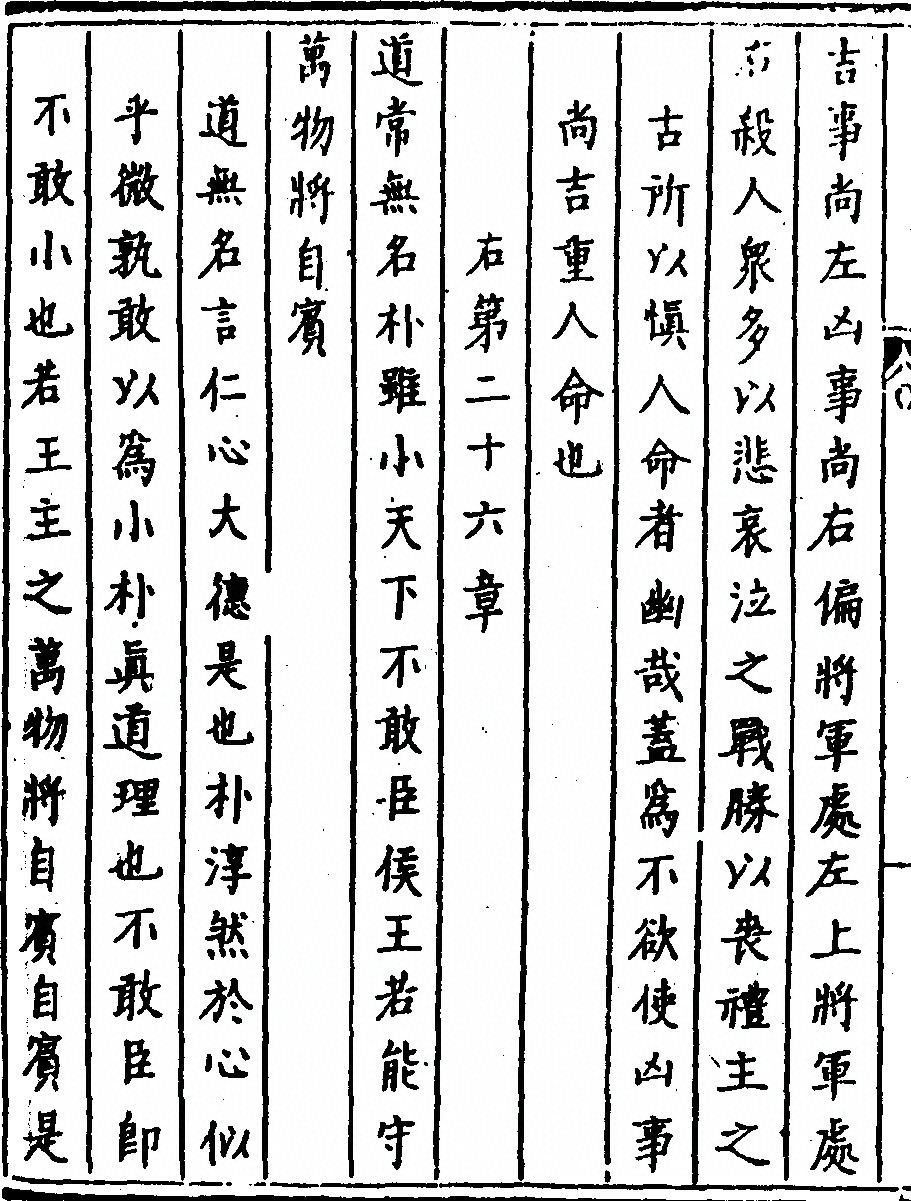 吉事尚左凶事尚右偏將軍處左上將軍處
右殺人衆多以悲哀泣之戰勝以喪禮主之
古所以愼人命者幽哉蓋爲不欲使凶事
尚吉重人命也
右第二十六章
道常無名朴雖小天下不敢臣侯王若能守
萬物將自賓
道無名言仁心大德是也朴淳然於心似
乎微孰敢以爲小朴眞道理也不敢臣卽
不敢小也若王主之萬物將自賓自賓是